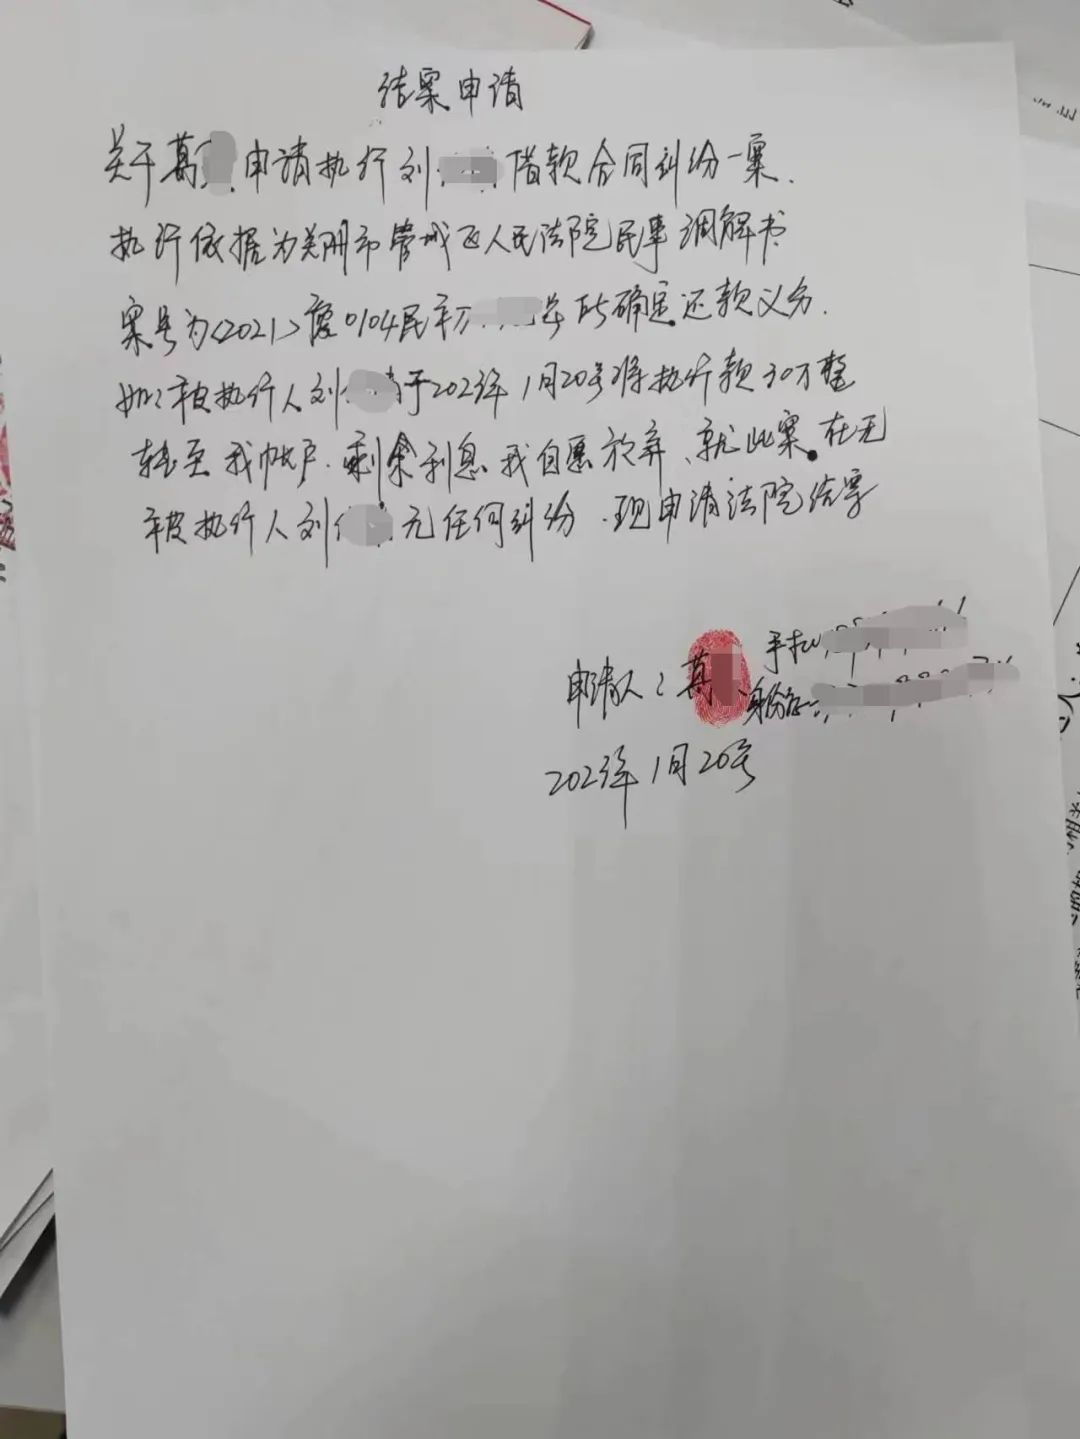 结案申请
关于葛 申请执行刘 借款合同纠纷一案.
执行依据为 市管城区人民法院民事调解书
案号为<2021>豫0104民初 号所确定还款义务.
如被执行人刘 于2023年1月20号将执行款30万整
转至我帐户.剩余利息我自愿放弃、就此案.在无
被执行人刘 无任何纠纷.现申请法院结案
申请人: 葛 手机
身份证
2023年1月20号